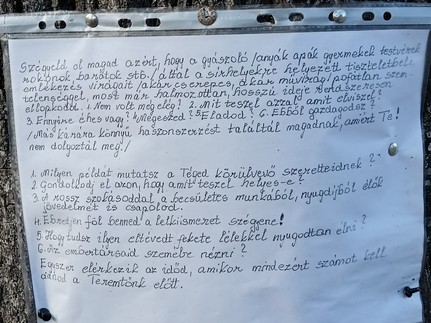 Szégyeld el magad azért, hogy a gyászoló /anyák apák gyermekek testvérek
rokonok, barátok stb./ által a sirhelyekre helyezett tiszteletbeli
emlékezés virágait /akár cserepes, akár művirág/ pofátlan szem-
telenséggel, most már halmozottan, hosszú ideje rendszeresen
ellopkodd. 1. Nem volt még elég? 2. Mit teszel azzal amit elviszel?
3. Ennyire éhes vagy? 4. Megeszed? 5. Eladod? 6. Ebből gazdagodsz?
/Más kárára könnyű haszonszerzést találtál magadnak, amiért Te!
nem dolgoztál meg./
1. Milyen példát mutatsz a Téged körülvevő szeretteidnek?
2. Gondolkodj el azon, hogy amit teszel helyes-e?
3. A rossz szokásoddal a becsületes munkából, nyugdíjból élők
jövedelmét is csapolod.
4. Ébredjen föl benned a lelkiismeret szégyene!
5. Hogy tudsz ilyen eltévedt fekete lélekkel nyugodtan élni?
6. Az embertársaid szemébe nézni?
Egyszer elérkezik az időd, amikor mindezért számot kell
adnod a Teremtőnk előtt.